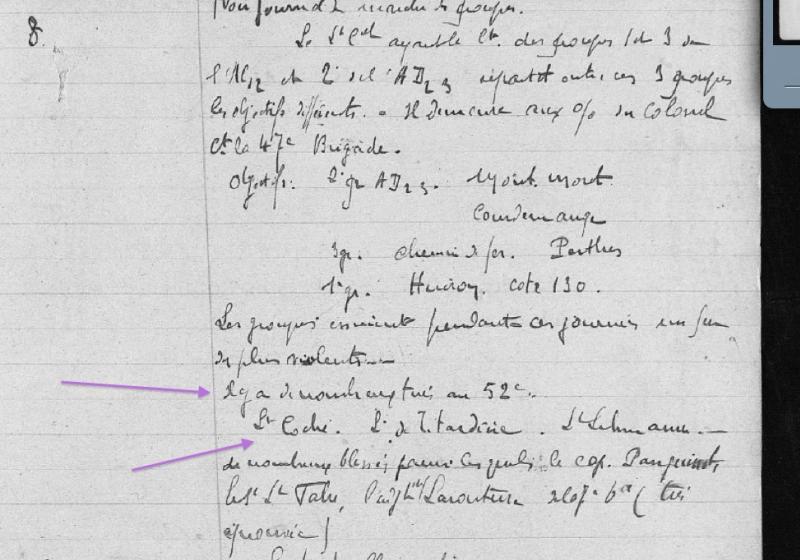 8.
pour journal de marche des groupes.
Le Lt Cel ayant le Ct. des groupes 1 et 3 de
l'AC12 et 2 de l'AD23 répartit entre ces 3 groupes
les objectifs différents. Il demeure aux o/ du Colonel
Ct la 47e Brigade.
Objectifs. 2e gr AD23. Mont. mort
Courdemange
3gr. chemin de fer. Perthes
1e gr. Huiron. cote 130.
Les groupes essuient pendant ces journées un feu
des plus violents
Il y a de nombreux tués au 52e.
Lt Coché. Lt de Titardière. Lt Lehmann.
de nombreux blessés parmi lesquels le cap.
le s/Lt Tahe, l'adjt Larouture de la 7e bie (très
éprouvée)